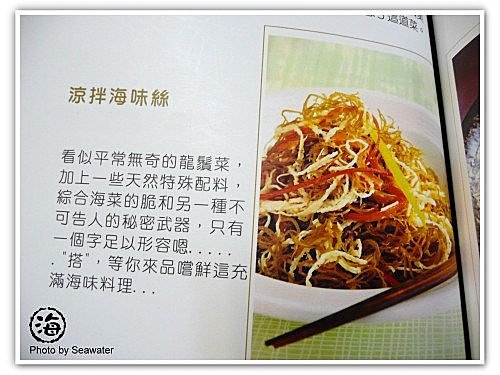 這道菜。
涼拌海味絲
看似平常無奇的龍鬚菜，
加上一些天然特殊配料，
綜合海菜的脆和另一種不
可告人的秘密武器，只有
一個字足以形容嗯.....
."搭"，等你來品嚐鮮這充
滿海味料理...
海
Photo by Seawater